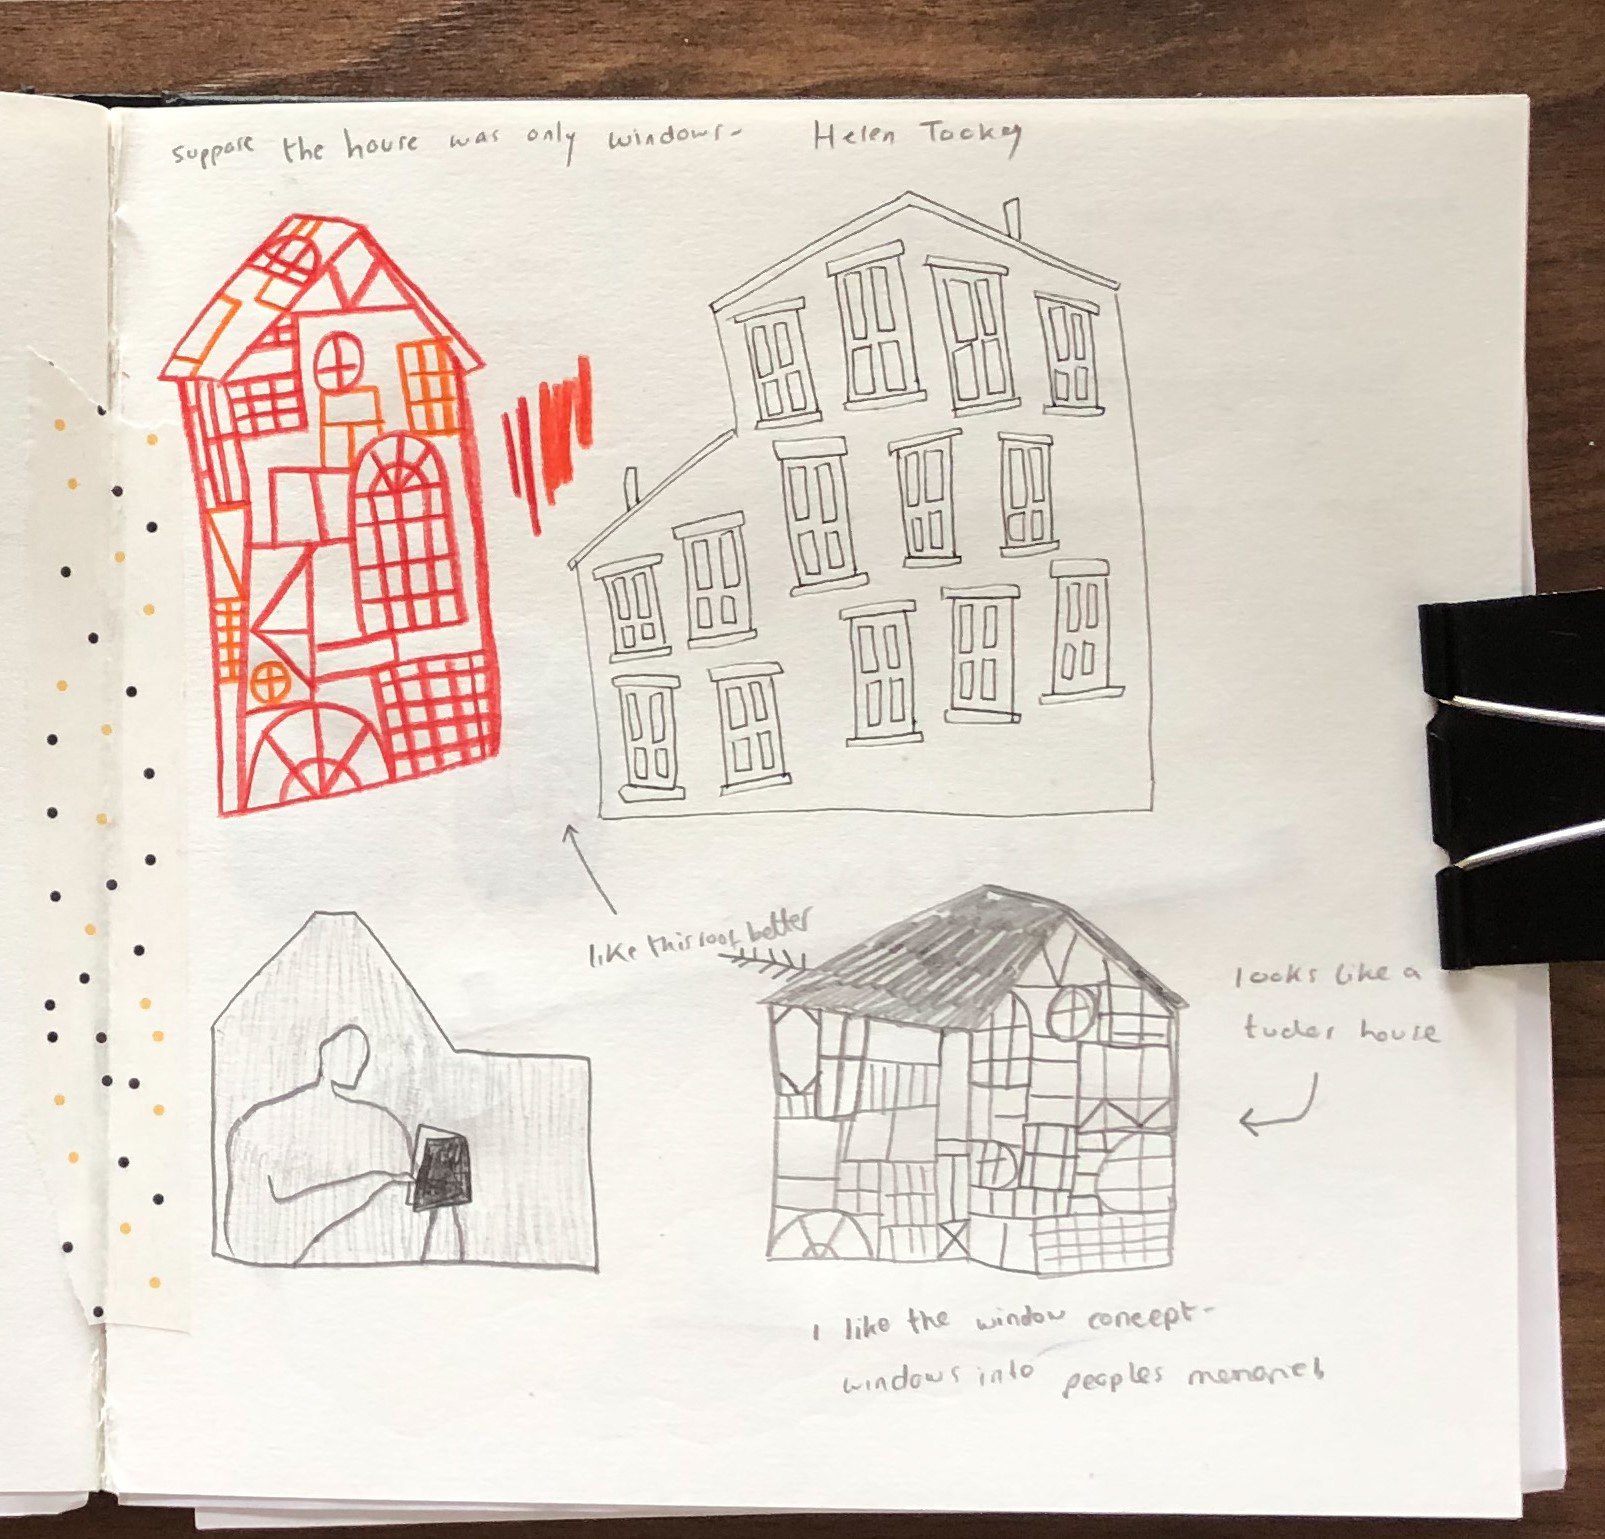 suppose the house was only windows- Helen Tookey
like this roof better
looks like a
tudor house
I like the window concept-
windows into peoples memories